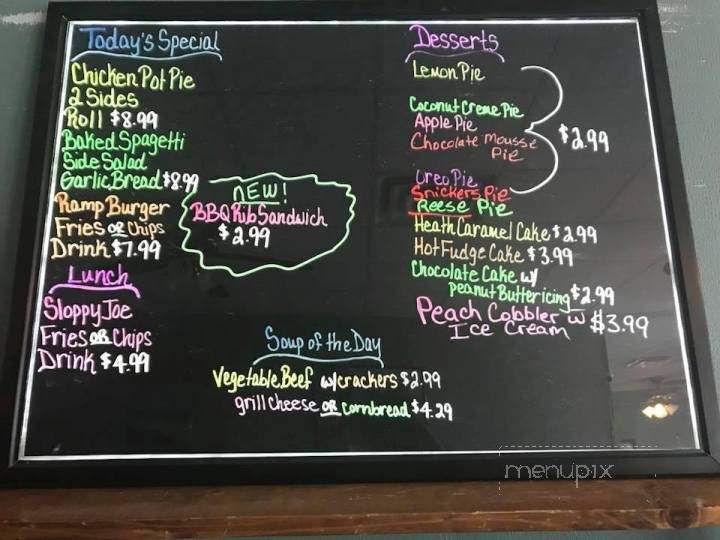 Today's Special
Chicken Pot Pie
2 Sides
Roll $8.99
Baked Spagetti
Side Salad
Garlic Bread $8.99
Ramp Burger
Fries OR Chips
Drink $7.99
NEW!
BBQ Rib Sandwich
$2.99
Lunch
Sloppy Joe
Fries OR Chips
Drink $4.99
Soup of the Day
Vegetable Beef w/crackers $2.99
grill cheese OR cornbread $4.29
Desserts
Lemon Pie
Coconut Creme Pie
Apple Pie
Chocolate Mousse
Pie
$2.99
Oreo Pie
Snickers Pie
Reese Pie
Heath Caramel Cake $2.99
Hot Fudge Cake $3.99
Chocolate Cake w/
peanut Butter icing $2.99
Peach Cobbler w
Ice Cream $3.99
menupix